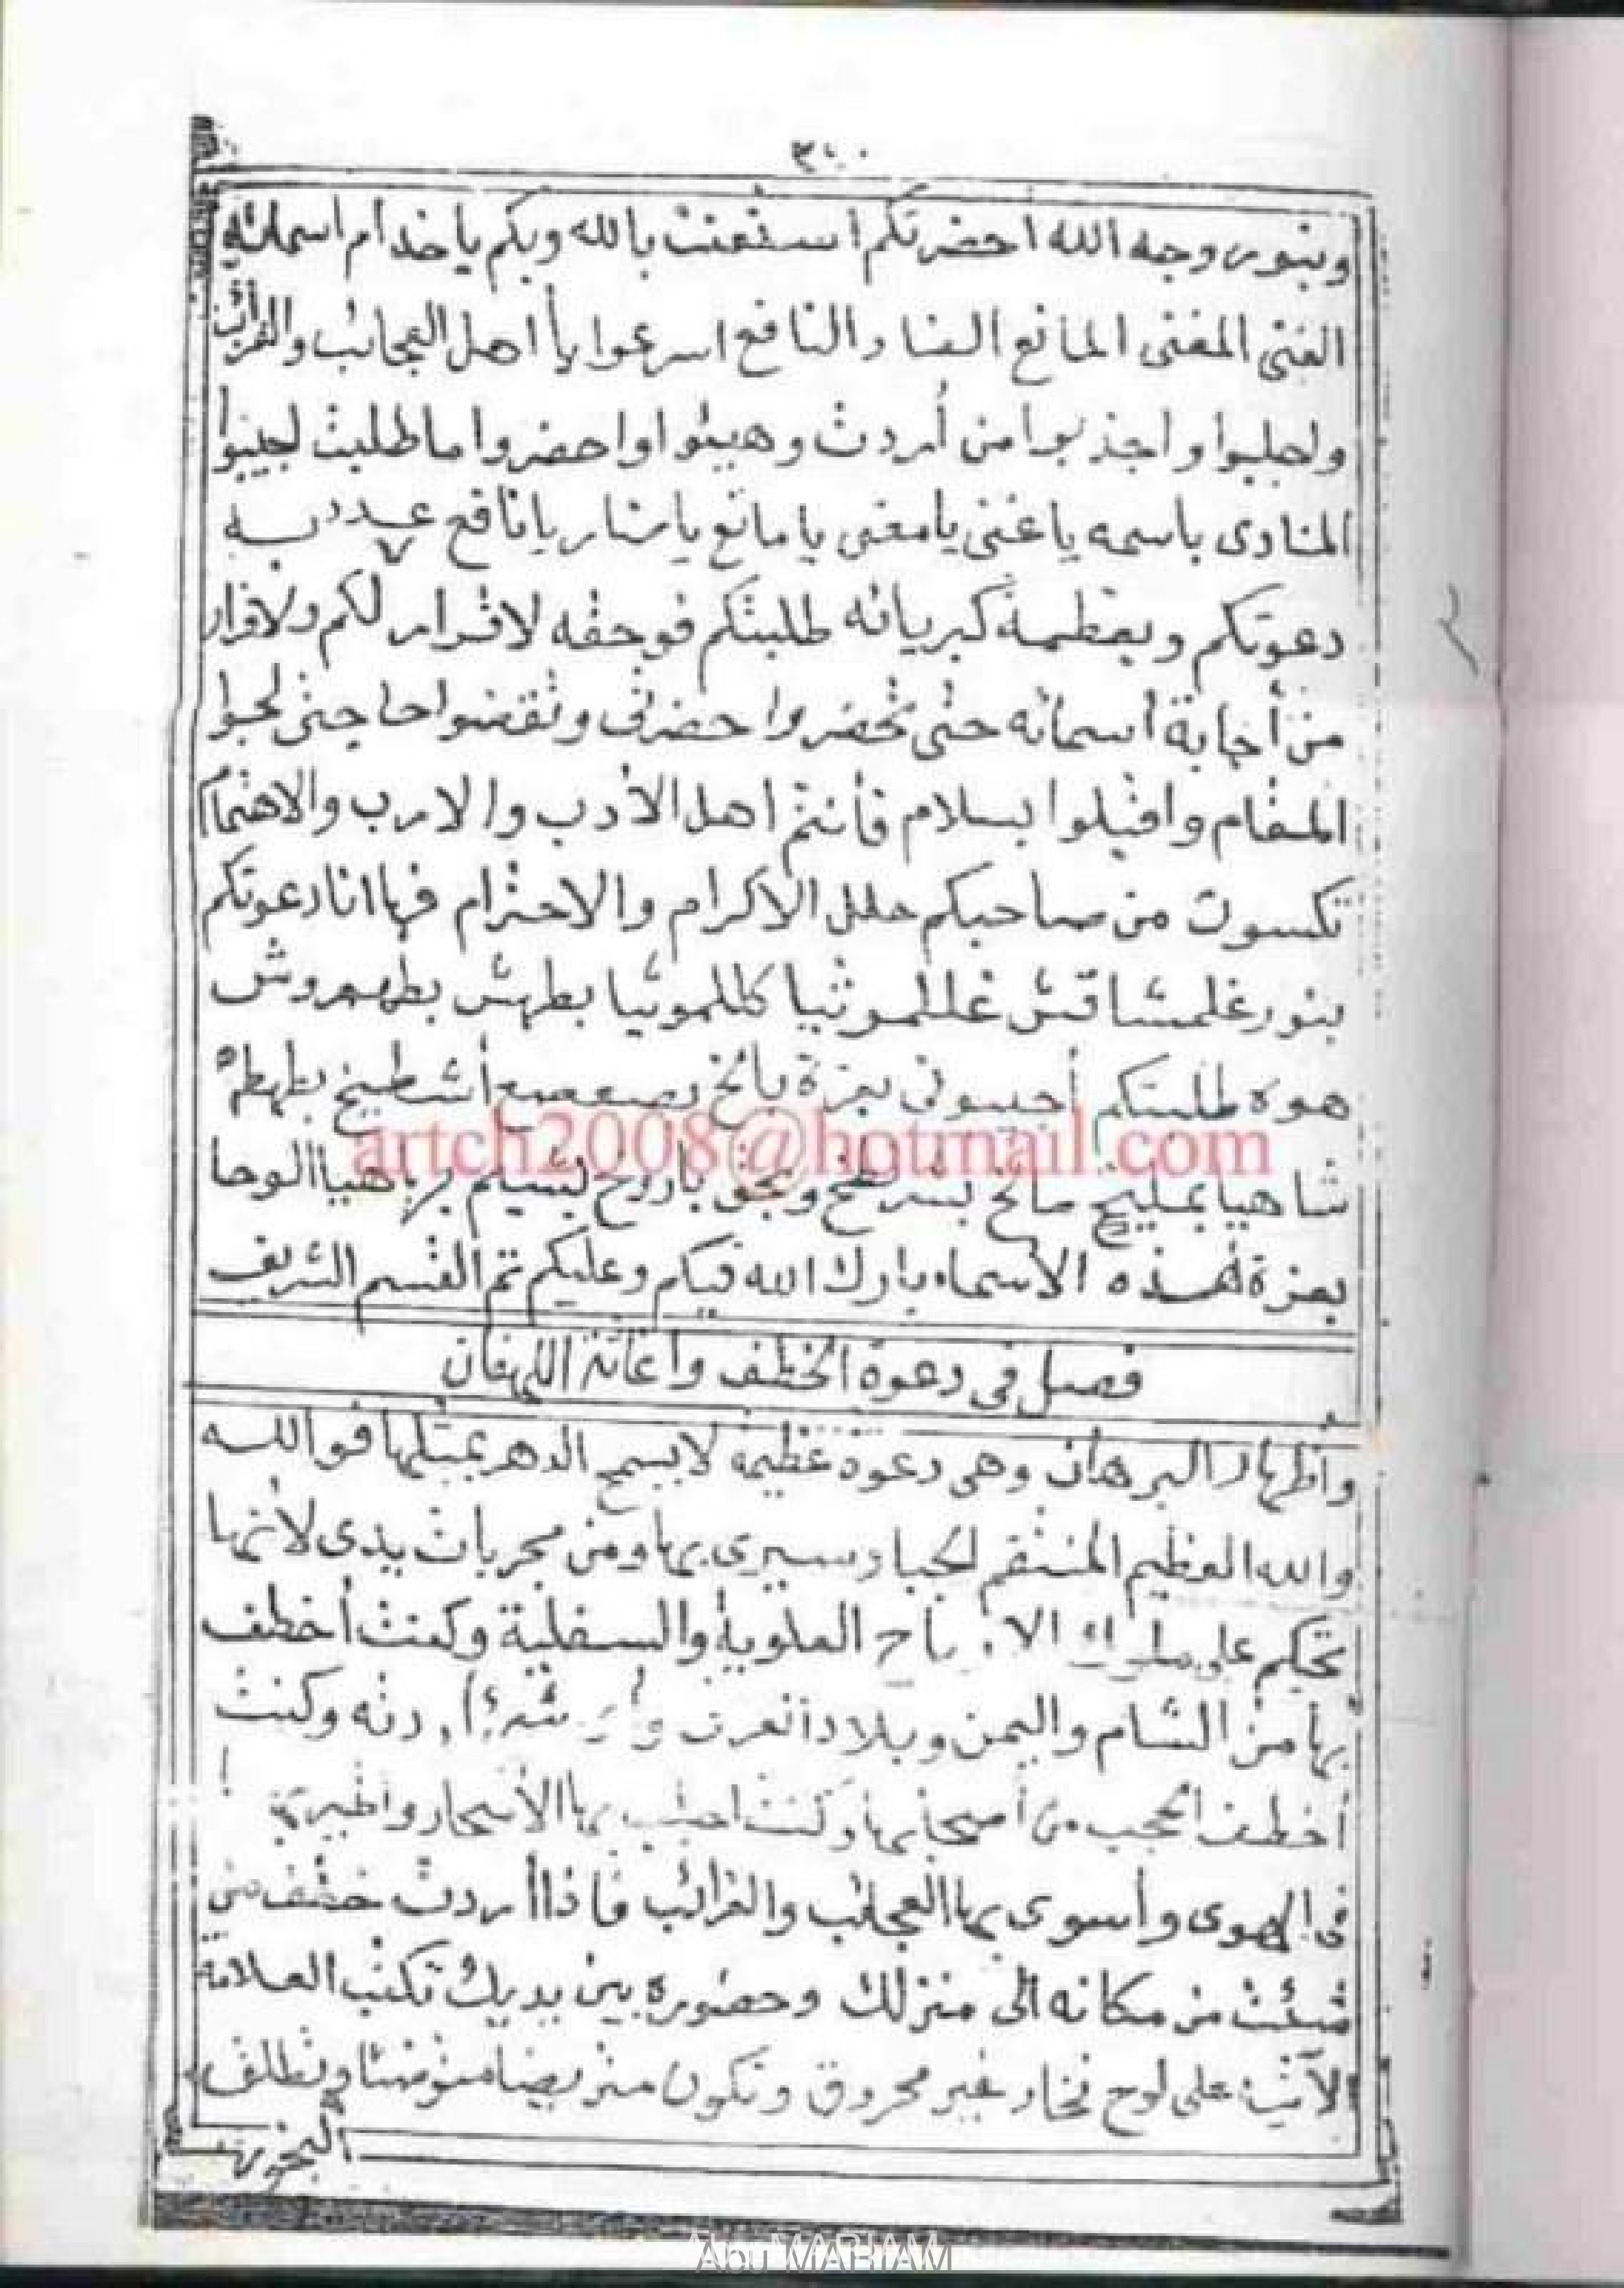 وبنور وجه الله احضرتكم استعنت بالله وبكم يا خدام اسمائه
الغنى المغنى المانع الضار النافع اسرعوا يا أهل العجائب والغرائب
واجلبوا واجذبوا من أردت وهيئوا واحضروا ما طلبت لجيبوا
المنادى باسمه يا غنى يا مغنى يا مانع يا ضار يا نافع
دعوتكم وبعظمة كبريائه طلبتكم فوحقه لا قرار لكم ولا فرار
من أجابة أسمائه حتى تحضروا حضرتى وتقضوا حاجتى لجوا
المقام واقبلوا بسلام فأنتم اهل الأدب والارب والاهتمام
تكسون من صاحبكم حلل الاكرام والاحترام فها انا دعوتكم
بنور غلمشاقش غللموثيا كللموثيا بطهش بطهروش
هوه طلبتكم أجيبونى بعزة يانخ بصعصع أشطيخ بطهطم
شاهيا بمليخ مانخ وبحق باروخ هيا الوحا
بعزة هذه الاسماء بارك الله فيكم وعليكم تم القسم الشريف
فصل فى دعوة الخطف واغاثة اللهفان
واظهار البرهان وهى دعوة عظيمة لا يسمح الدهر بمثلها فوالله
والله العظيم المنتقم الجبار سيرى بها ومن مجربات يدى لأنها
تحكم على ملوك العلوية والسفلية وكنت أخطف
بها من الشام واليمن وبلاد ردته وكنت
أخطف الحجب من أصحابها وكنت بها الأسحار
فى الهوى وأسوى بها العجائب والغرائب فاذا أردت خطف من
شئت من مكانه الى منزلك وحضوره بين يديك تكتب العلامة
الآتية على لوح فخار غير محروق وتكون متريضا متوضئا وتطلق
البخور
artch2008@hotmail.com
Abu MARIAM